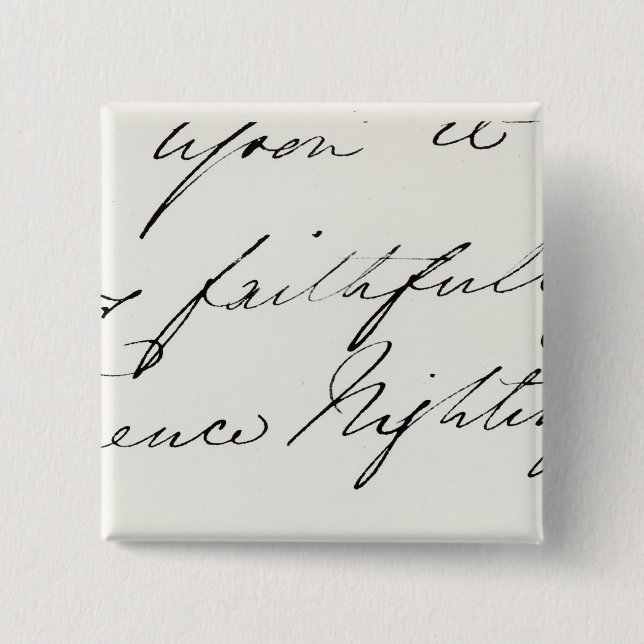 upon it
s faithfull
ence Nighting